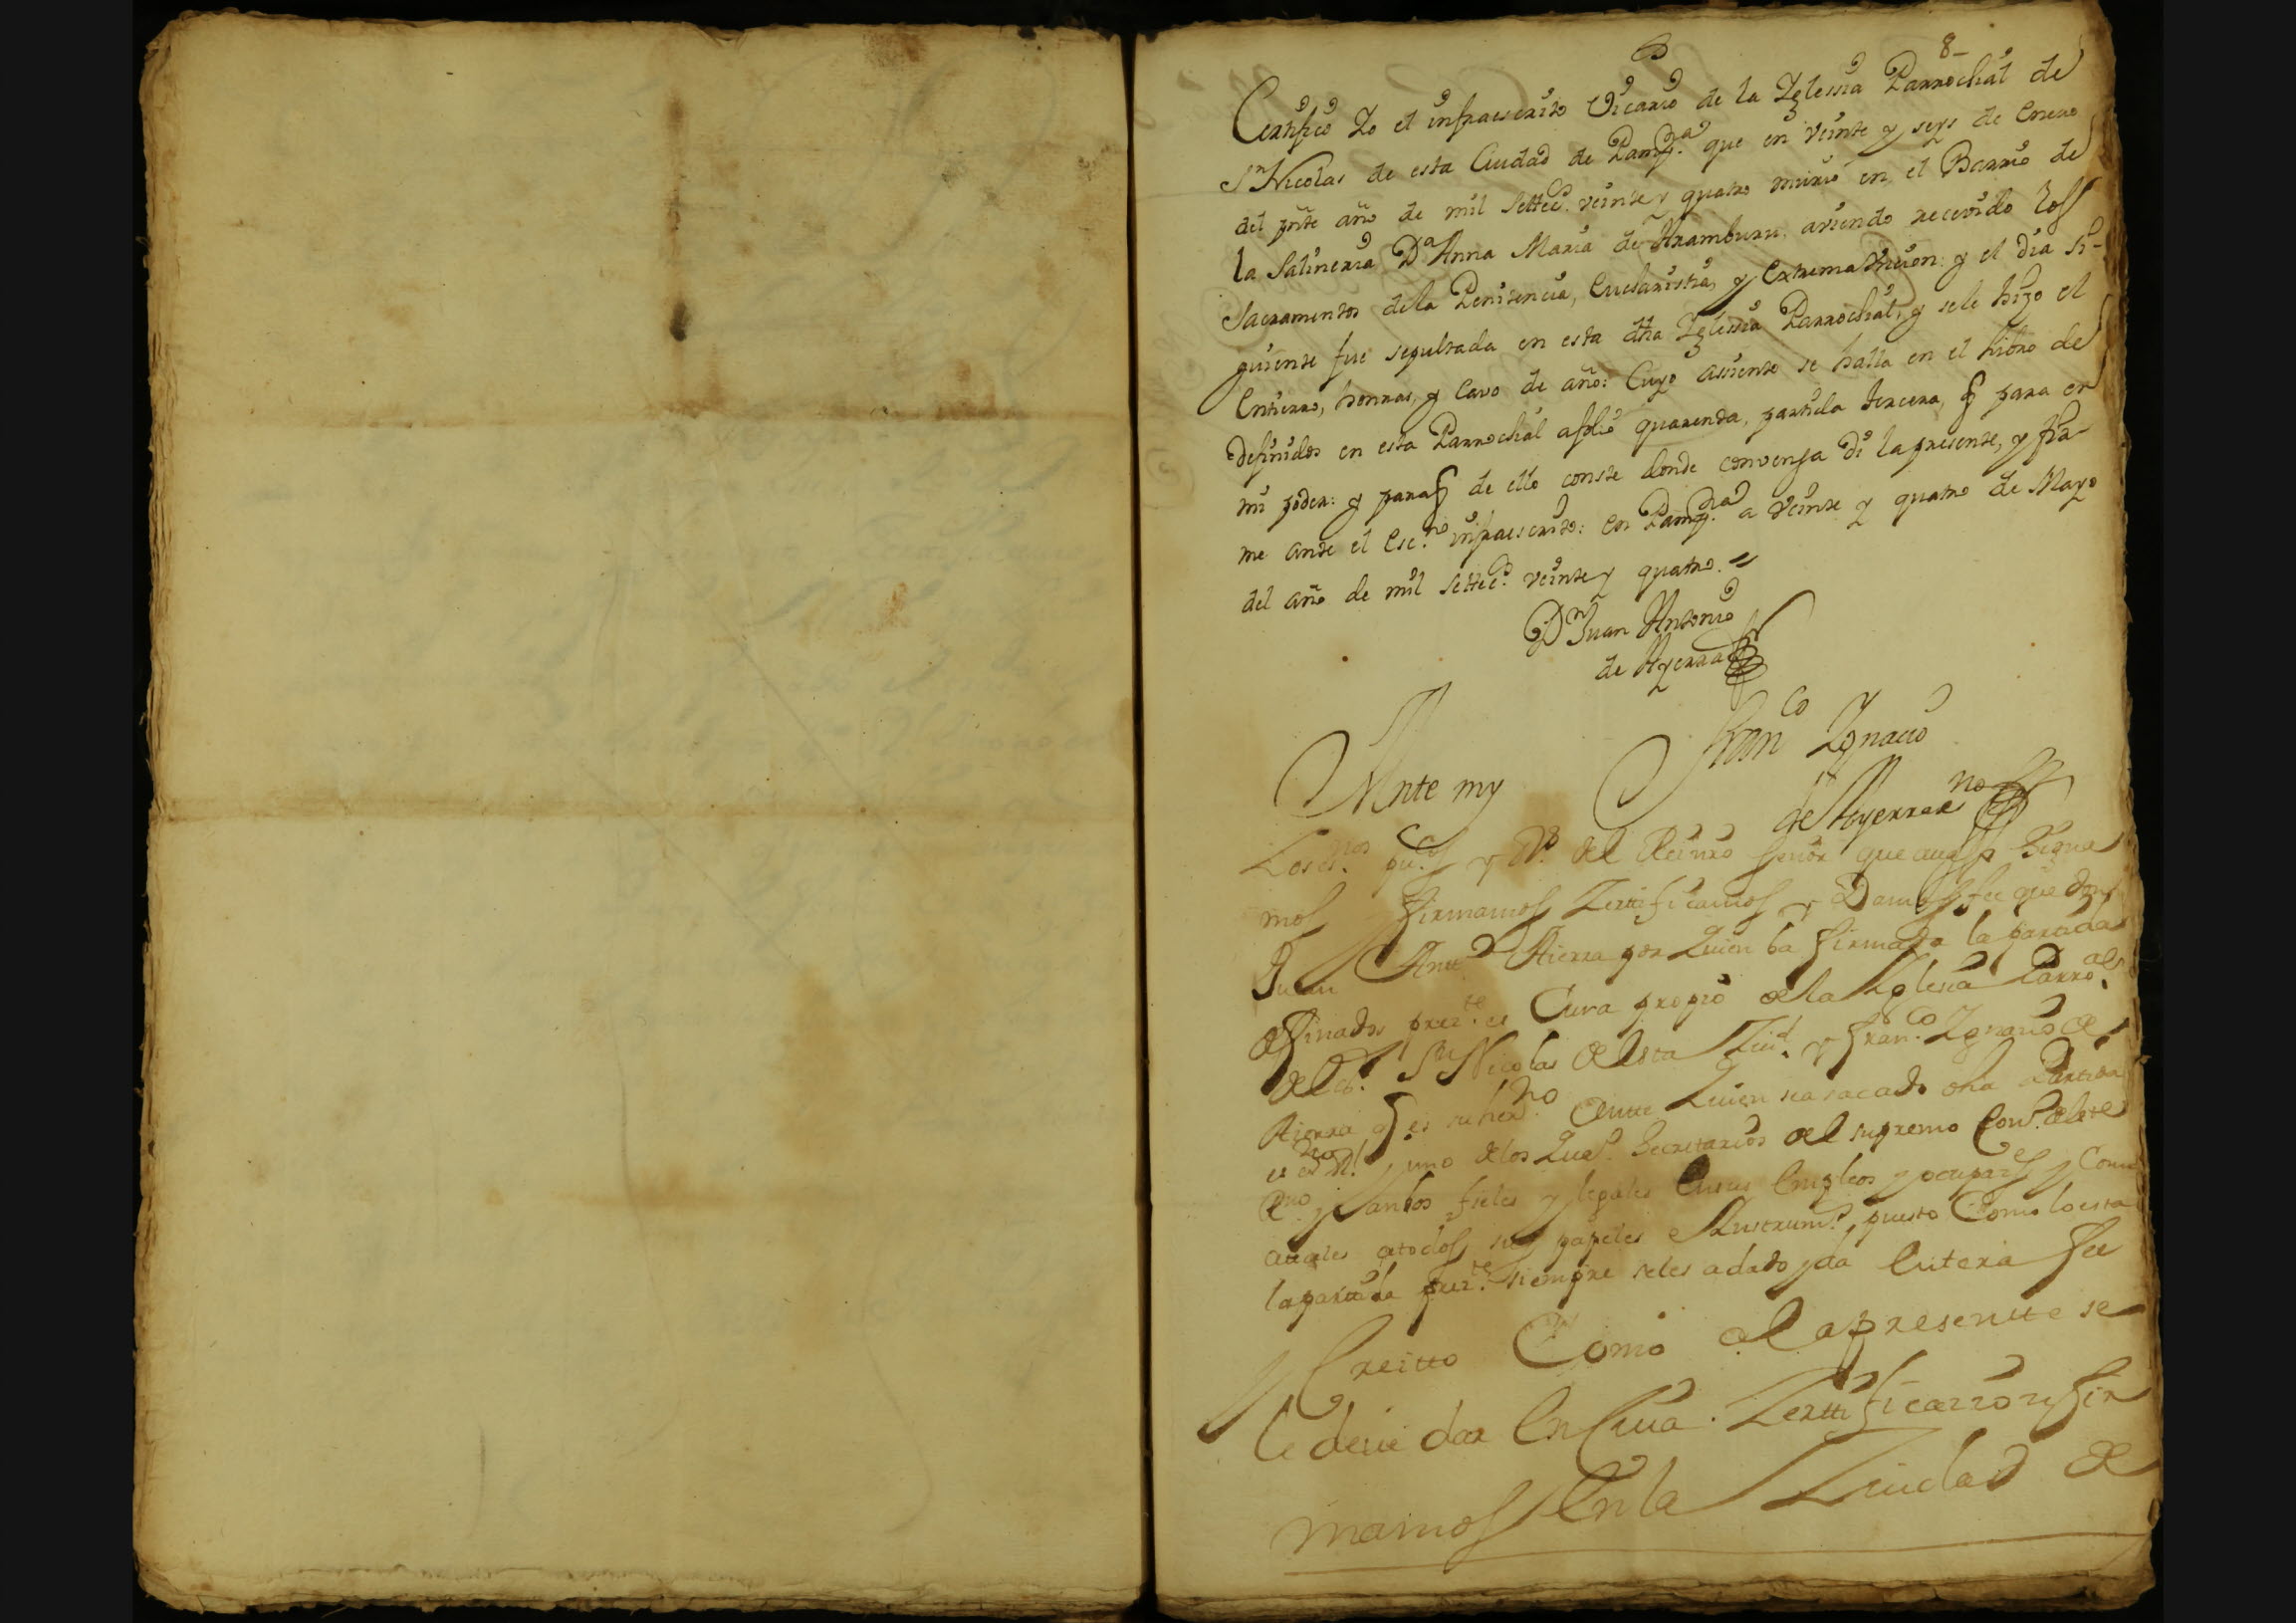 8
Certifico Yo el infraescrito Vicario de la Yglessia Parrochial de
Sn Nicolas de esta Ciudad de Pampna que en veinte y seys de Enero
del pnte año de mil Settecs veinte y quatro murio en el Barrio de
la Salineria Da Anna Maria de Aramburu, aviendo recevido los
Sacramentos dela Penitencia, Eucharistia, y Extrema Uncion: y el dia si-
guiente fue sepultada en esta dha Yglessia Parrochial, y sele hizo el
Entierro, honras, y Cavo de año: Cuyo assiento se halla en el Libro de
defunidos en esta Parrochial afolio quarenta, partida tercera, q para en
mi poder: y paraq de ello conste donde convenga di la presente, y fir-
me ante el Escno infraescrito: en Pampna a veinte y quatro de Mayo
del año de mil Settecs veinte y quatro.
Dn Juan Antonio
de Ayerra
Ante my Franco Ygnacio
de Ayerra no
Los esnos pucos y Rs del Reino señor que aqui signa
mos firmamos Zertificamos y Damos fee que don
Juan Antto Aierra por Quien ba firmada la partida
de finados prezte es Cura propio de la Yglesia Parroal
de Sn Nicolas de esta Ziud y Franco Ygnacio de
Aierra q es su herno Ante Quien sea sacado dha Partida
es esno Rl y uno de los Secretarios del supremo Cons de este
Rno y anbos fieles y legales en sus Empleos y ocupaces y Como
atales atodos sus papeles e Ynstrums puesto Como lo esta
la partida prezte siempre seles adado y da Entera fee
y Creitto Como a la presentte se
le deve dar En Cuia Zerttificazion fir
mamos En la Ziudad de